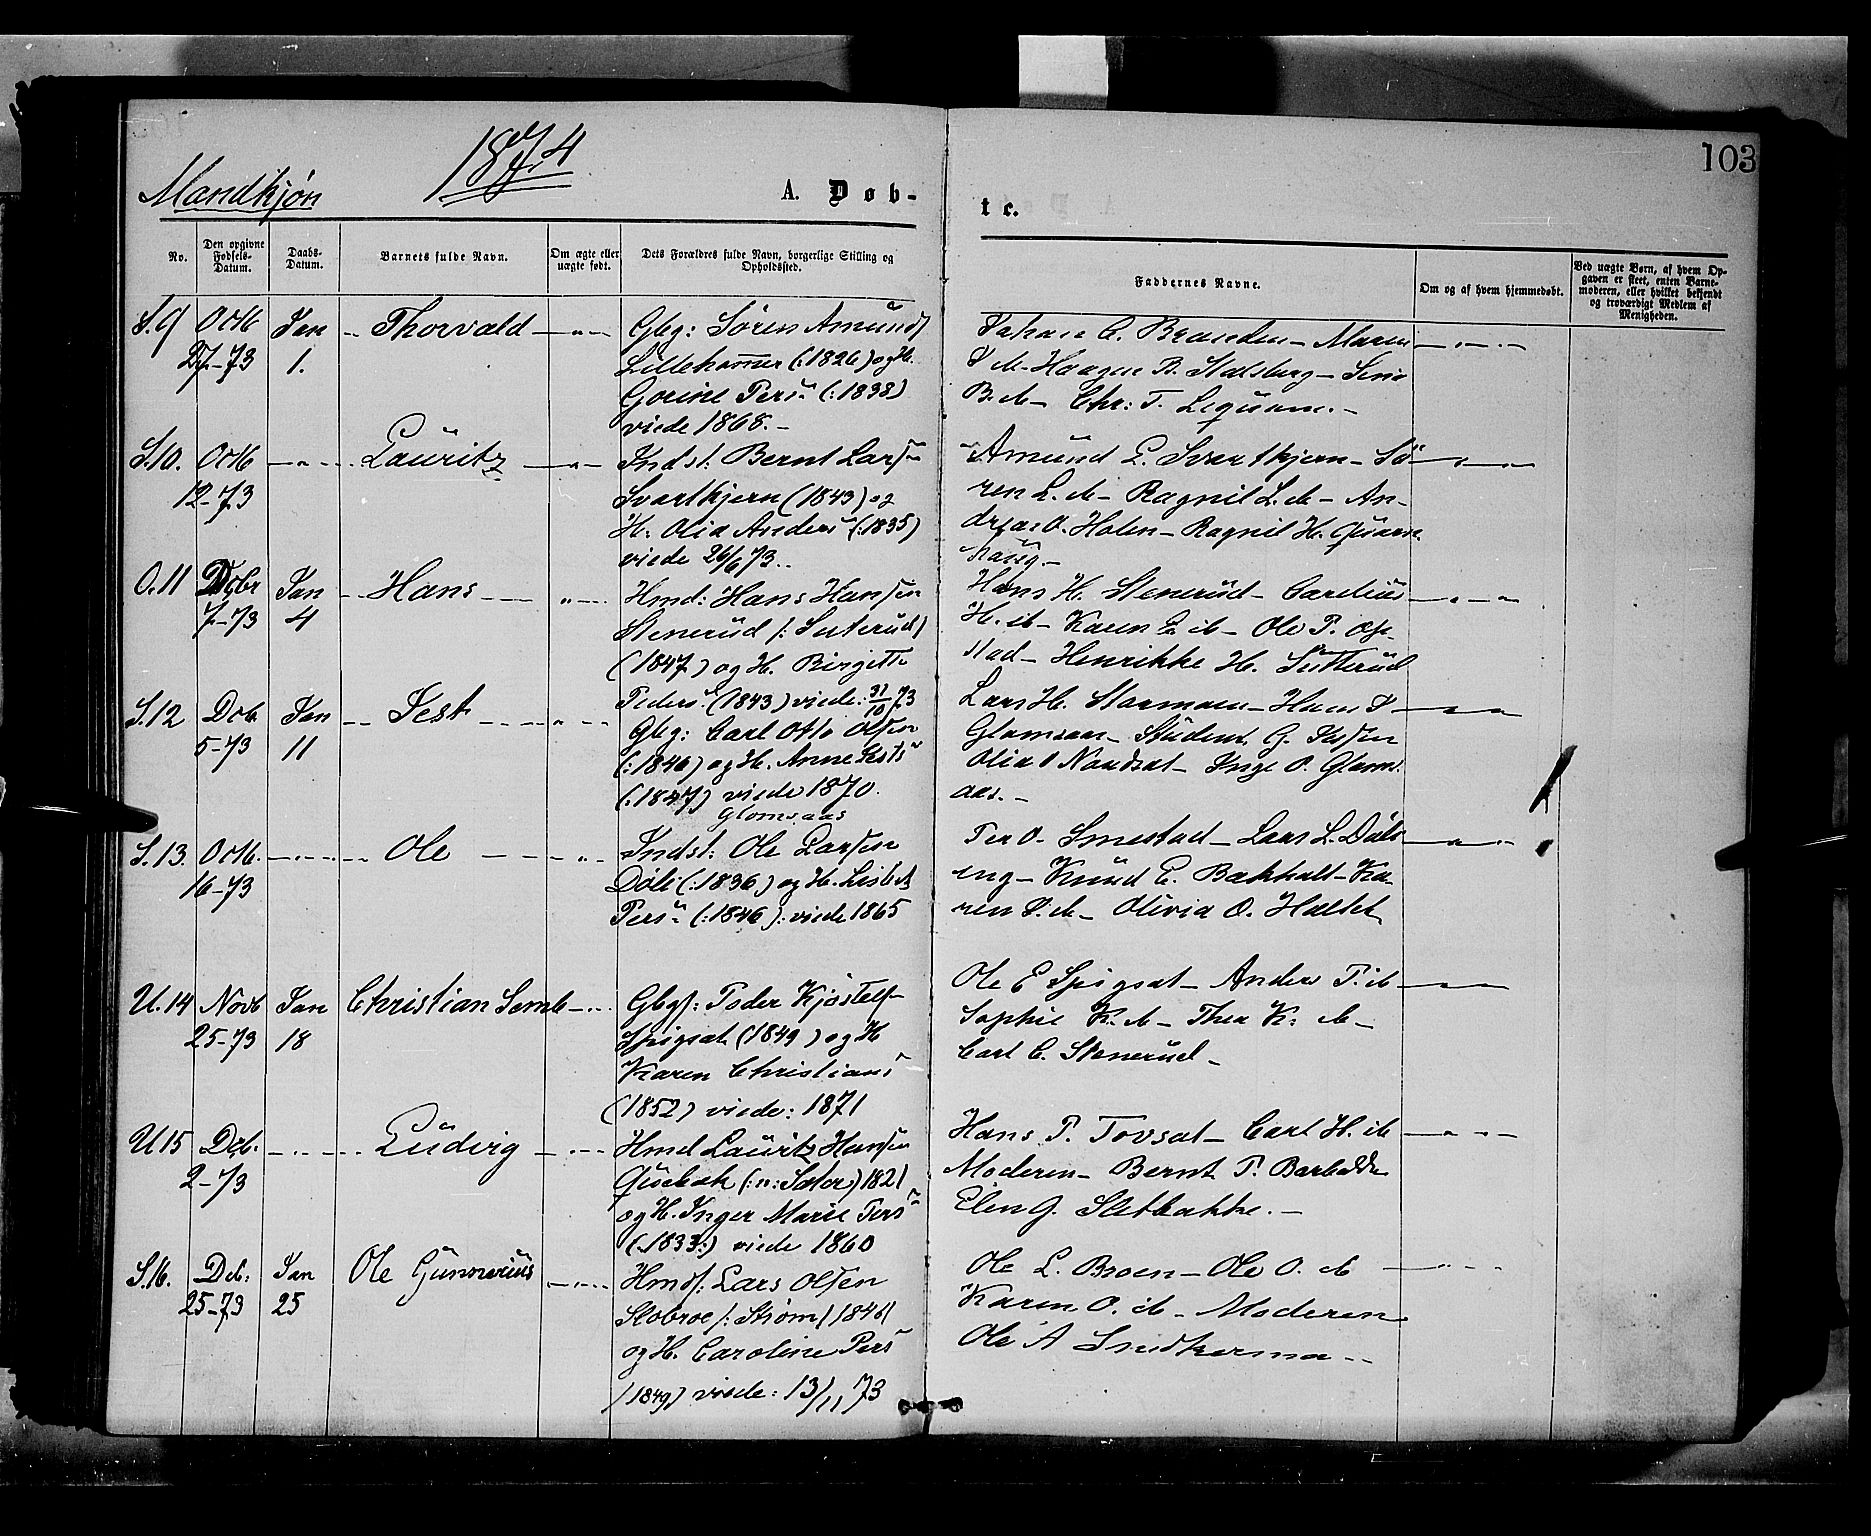 103
1874
Mandkjøn
A. Døb-
te.
No.
Den opgivne Fødsels-Datum.
Daabs-Datum.
Barnets fulde Navn.
Om ægte eller uægte født.
Dets Forældres fulde Navn, borgerlige Stilling og Opholdssted.
Faddernes Navne.
Om og af hvem hjemmedøbt.
Ved uægte Børn, af hvem Opgaven er skeet, enten Barnemoderen, eller hvilket bekjendt og troværdigt Medlem af Menigheden.
S.9 Octb Jan Thorvald Gbg: Søren Amunds
27-73 1. Lillehammer (:1826) og H.
Gorine Pers (:1838)
viede 1868.-
Johan C. Brænden - Maren
Haagen B. Stalsberg -
B. - Chr: T.
S.10. Octb Lauritz Indst: Bernt Larsen
12-73 Svartkjern (1843) og
H: Olia Anders (:1835)
viede 26/6 73.
Amund L. Svartkjern - Sø-
ren L. ib - Ragnil L. ib - An-
dreas O. Holen - Ragnil H. Quarn
haug -
O.11 Dcbr Jan Hans Hmd: Hans Hansen
7-73 4 Stenerud
(1847) og H. Birgitte
Peders (1843) viede: 31/10 73
Hans H. Stenerud - Carelius
H. ib - Karen ib - Ole P. Op-
stad - Henrikke H.
S.12 Dcb Jan Jest Gbg: Carl Otto Olsen
5-73 11 (:1846) og H. Anne Jests
(:1847) viede 1870.
Glomsaas
Lars H. - Hans
Glomsaas - Student G.
Olia Nordsat - Inge O. Gloms-
aas. -
S.13. Octb. Ole Indst: Ole Larsen
16-73 Døli (:1836) og H. Lisbet
Pers (:1846): viede 1865
Per O. Smestad - Lars L. Døli-
eng - Knud E. Bækhalt - Ka-
ren ib - Olivia O. Haltet
U.14 Novb Jan Christian Semb Gbgs: Peder Kjøstels
25-73 18 Spigsæt (1849) og H
Karen Christians
(1852) viede: 1871
Ole E Spigsæt - Anders P. ib
Sophie K. ib - Thea K: ib -
Carl C. Stenerud -
U15 Dcb. Ludvig Hmd Lauritz Hansen
2-73 1821
og H. Inger Marie Pers
(:1833:) viede 1860
Hans P. Tovsæt - Carl H. ib
Moderen - Bernt P.
Elen G. Sletbakke. -
S.16. Dcb: Jan Ole Gunnerius Hmds: Lars Olsen
25-73 25 /:Strøm/ 1846/
og H. Caroline Pers
/1849) viede: 13/11 73
Ole L. Broen - Ole O. ib
Karen O. ib - Moderen
Ole A